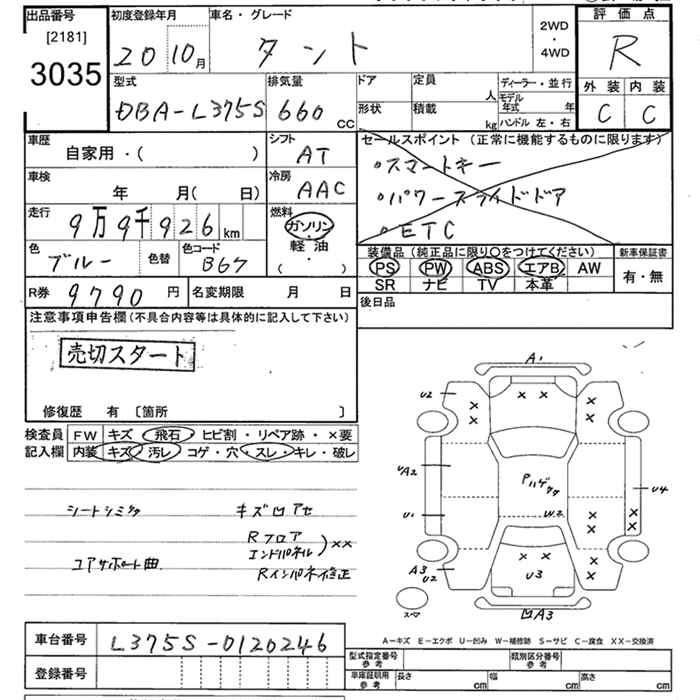 出品番号 初度登録年月 車名・グレード 2WD・4WD 評価点
[2181]
3035 20 10月 タント R
型式 排気量 ドア 定員 人 ディーラー・並行 外装 内装
DBA-L375S 660cc 形状 積載 kg モデル年式 年 C C
ハンドル 左・右
車歴 シフト セールスポイント(正常に機能するものに限ります)
自家用・( ) AT ・スマートキー
車検 年 月( 日) 冷房 AAC ・パワースライドドア
走行 9万9千926km 燃料 ガソリン・軽油・( ) ・ETC
色 ブルー 色替 色コード B67 装備品(純正品に限り〇をつけてください) 新車保証書
PS PW ABS エアB AW 有・無
SR ナビ TV 本革
R券 9790円 名変期限 月 日 後日品
注意事項申告欄(不具合内容等は具体的に記入して下さい)
売切スタート
修復歴 有 〔箇所 〕
検査員 FW キズ 飛石・ヒビ割・リペア跡・×要
記入欄 内装 キズ 汚レ コゲ・穴・スレ・キレ・破レ
シートシミ キズ凹アセ
Rフロア
エンドパネル )××
コアサポート曲 Rインパネ修正
A1
U2 × × × ×
× ×
UA2 Pハゲ U4
U1 W2 × ×
×
A3 U2 × × U3 ×
スペア 凹A3
A-キズ E-エクボ U-凹み W-補修跡 S-サビ C-腐食 XX-交換済
車台番号 L375S-0120246 型式指定番号 参考 類別区分番号 参考
登録番号 車庫証明用 参考 長さ cm 幅 cm 高さ cm